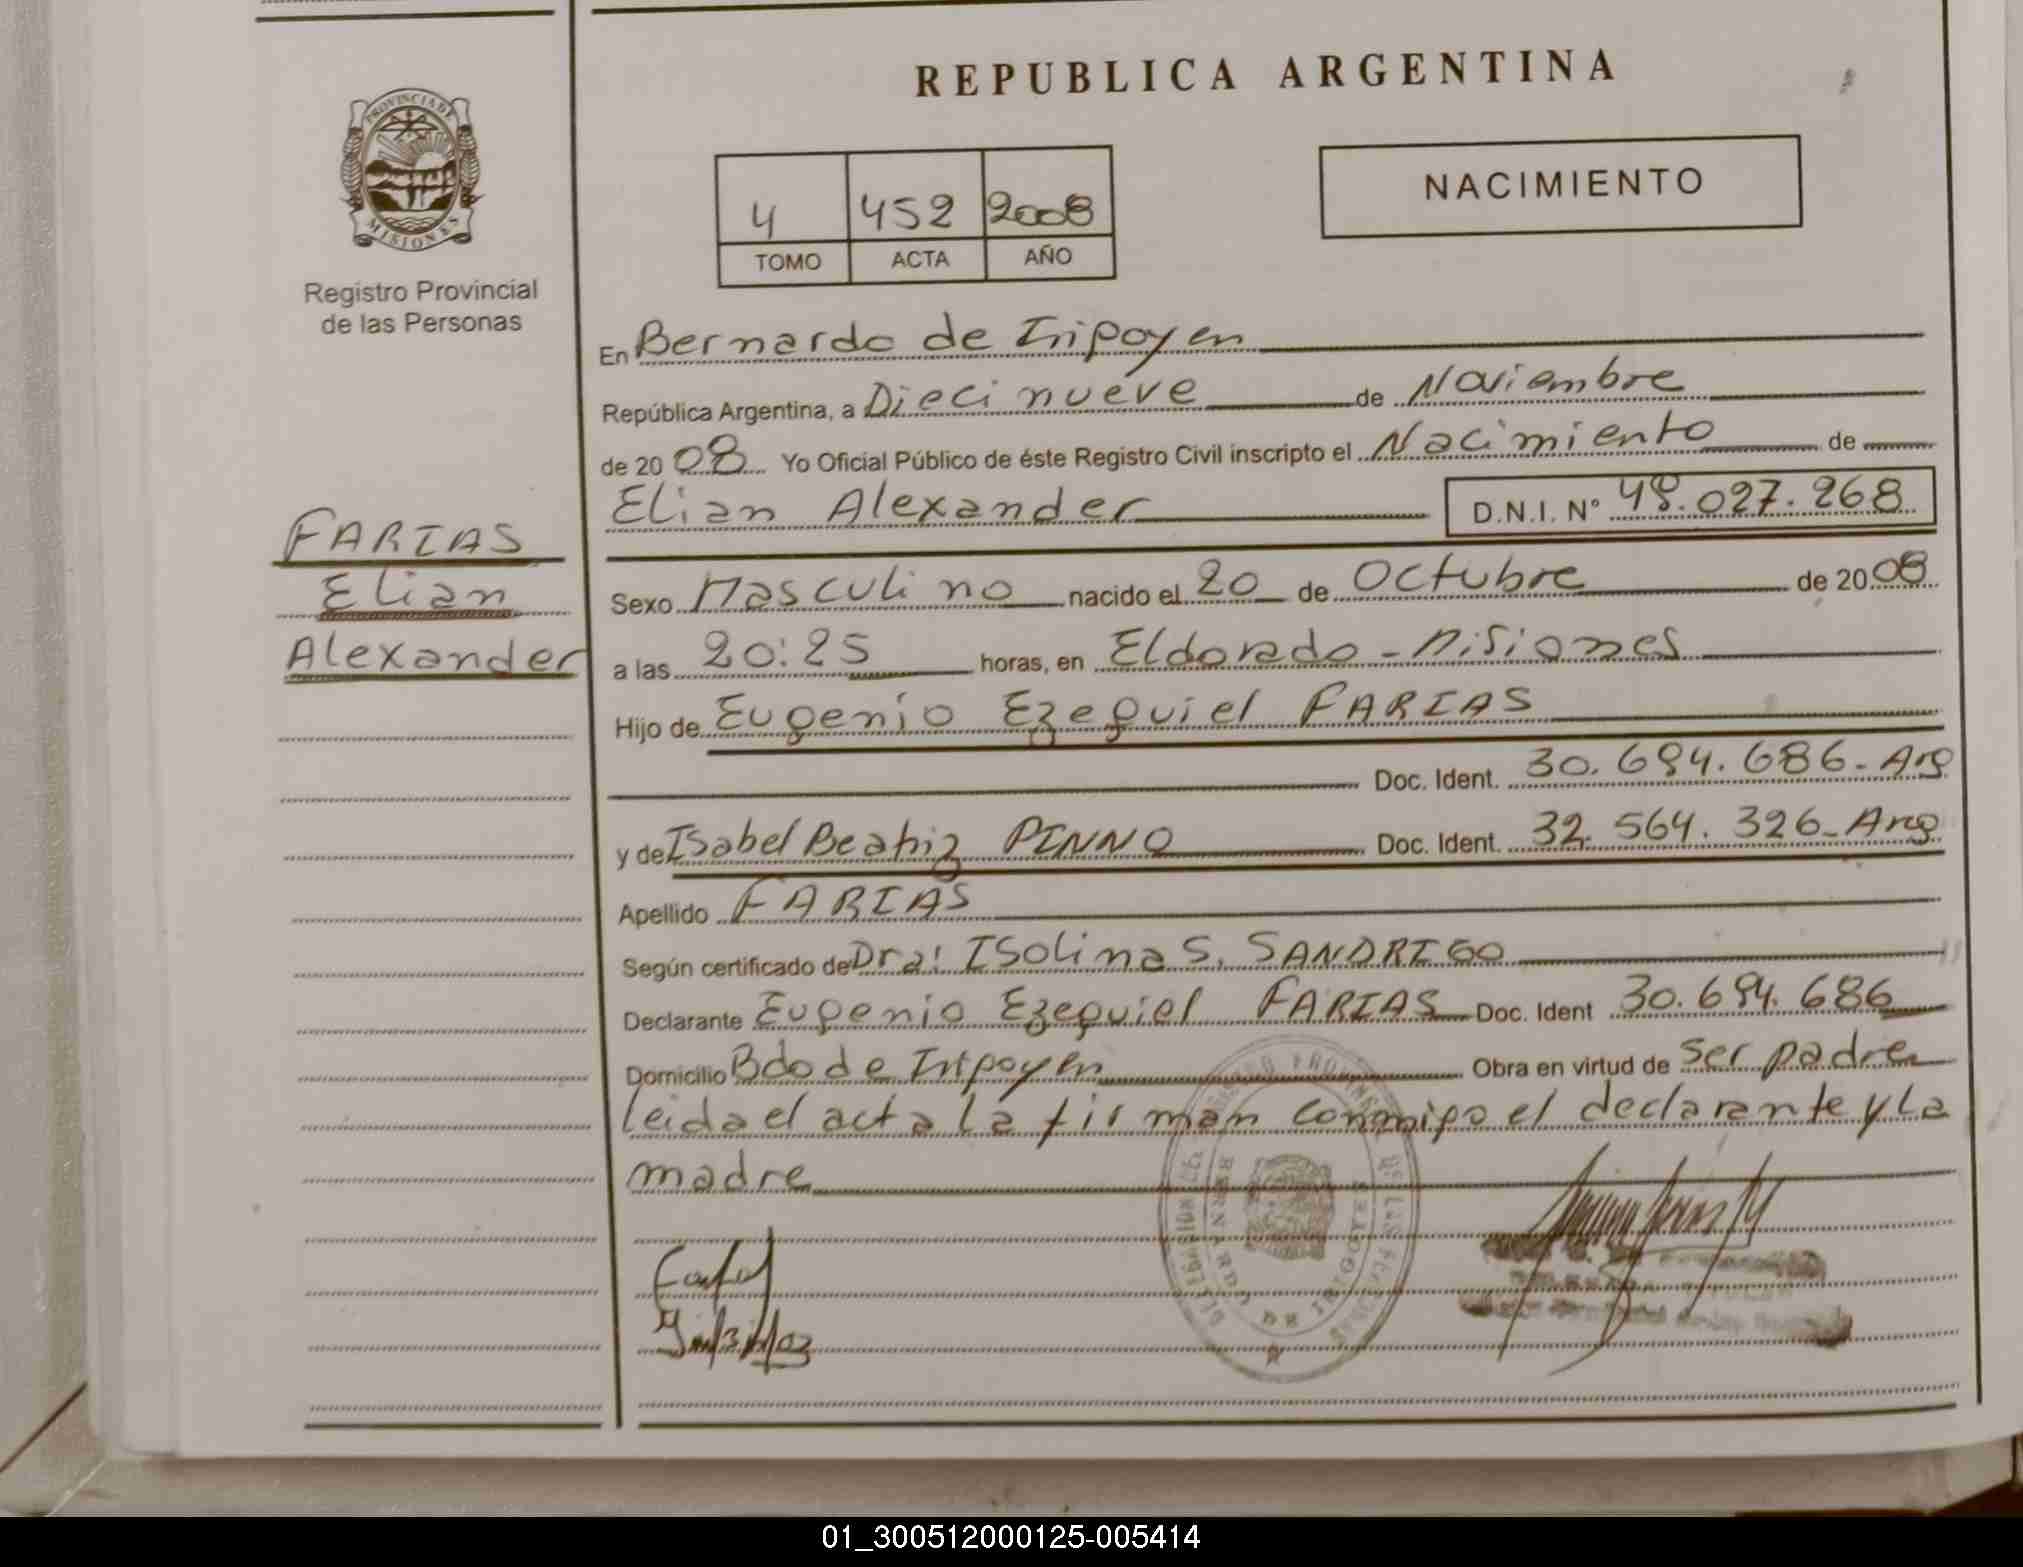 REPUBLICA ARGENTINA
PROVINCIA DE
MISIONES
Registro Provincial
de las Personas
4 452 2008
TOMO ACTA AÑO
NACIMIENTO
En Bernardo de Irigoyen
República Argentina, a Diecinueve de Noviembre
de 2008 Yo Oficial Público de éste Registro Civil inscripto el Nacimiento de
Elian Alexander D.N.I. Nº 48.027.268
FARIAS
Elian
Alexander
Sexo Masculino nacido el 20 de Octubre de 2008
a las 20:25 horas, en Eldorado - Misiones
Hijo de Eugenio Ezequiel FARIAS
Doc. Ident. 30.694.686- Arg
y de Isabel Beatriz PINNO Doc. Ident. 32.564.326- Arg
Apellido FARIAS
Según certificado de Dra: ISolina S. SANDRIGO
Declarante Eugenio Ezequiel FARIAS Doc. Ident 30.694.686
Domicilio Bdo de Irigoyen Obra en virtud de Ser padre
leida el acta la firman conmigo el declarante y la
madre
BERNARDO DE IRIGOYEN
01_300512000125-005414